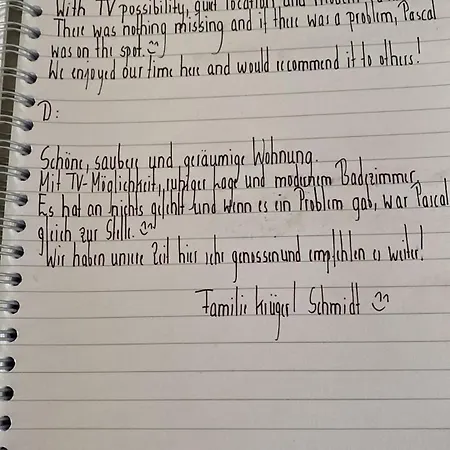 With TV possibility, quiet location, and modern
There was nothing missing and if there was a problem, Pascal
was on the spot.
We enjoyed our time here and would recommend it to others!
D:
Schöne, saubere und geräumige Wohnung.
Mit TV-Möglichkeit, ruhiger Lage und modernem Badezimmer.
Es hat an nichts gefehlt und wenn es ein Problem gab, war Pascal
gleich zur Stelle.
Wir haben unsere Zeit hier sehr genossen und empfehlen es weiter!
Familie Krüger / Schmidt